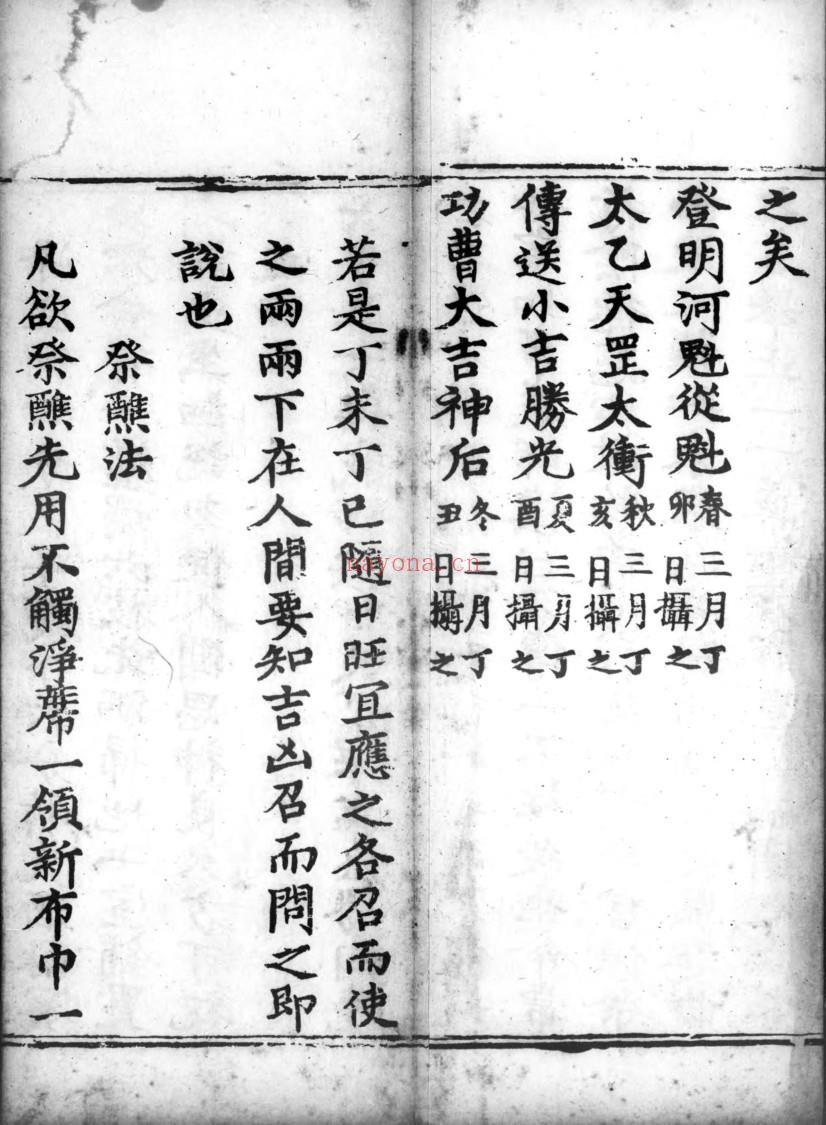 之矣
登明河魁從魁春三月丁卯日攝之
太乙天罡太衝秋三月丁亥日攝之
傳送小吉勝光夏三月丁酉日攝之
功曹大吉神后冬三月丁丑日攝之
若是丁未丁巳隨日旺宜應之各召而使
之兩兩下在人間要知吉凶召而問之即
說也
祭醮法
凡欲祭醮先用不觸淨席一領新布巾一
nayona.cn